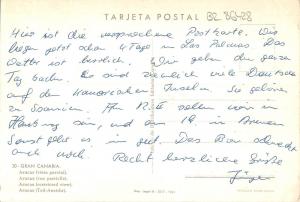 TARJETA POSTAL
Hier ist die versprochene Postkarte. Wir
liegen jetzt schon 4 Tage in Las Palmas. Das
Wetter ist herrlich. Wir gehen den ganzen
Tag baden. Es sind ziemlich viele Deutsche
auf den Kanarischen Inseln. Sie gehören
zu Spanien. Am 12. wollen wir in
Hamburg sein, und den 19. in Bremen
Sonst geht es gut. Das
auch noch. Recht herzliche Grüße
Jürgen
30 - GRAN CANARIA.
Arucas (vista parcial).
Arucas (vue partielle).
Arucas (sectional view).
Arucas (Teil-Ansicht).